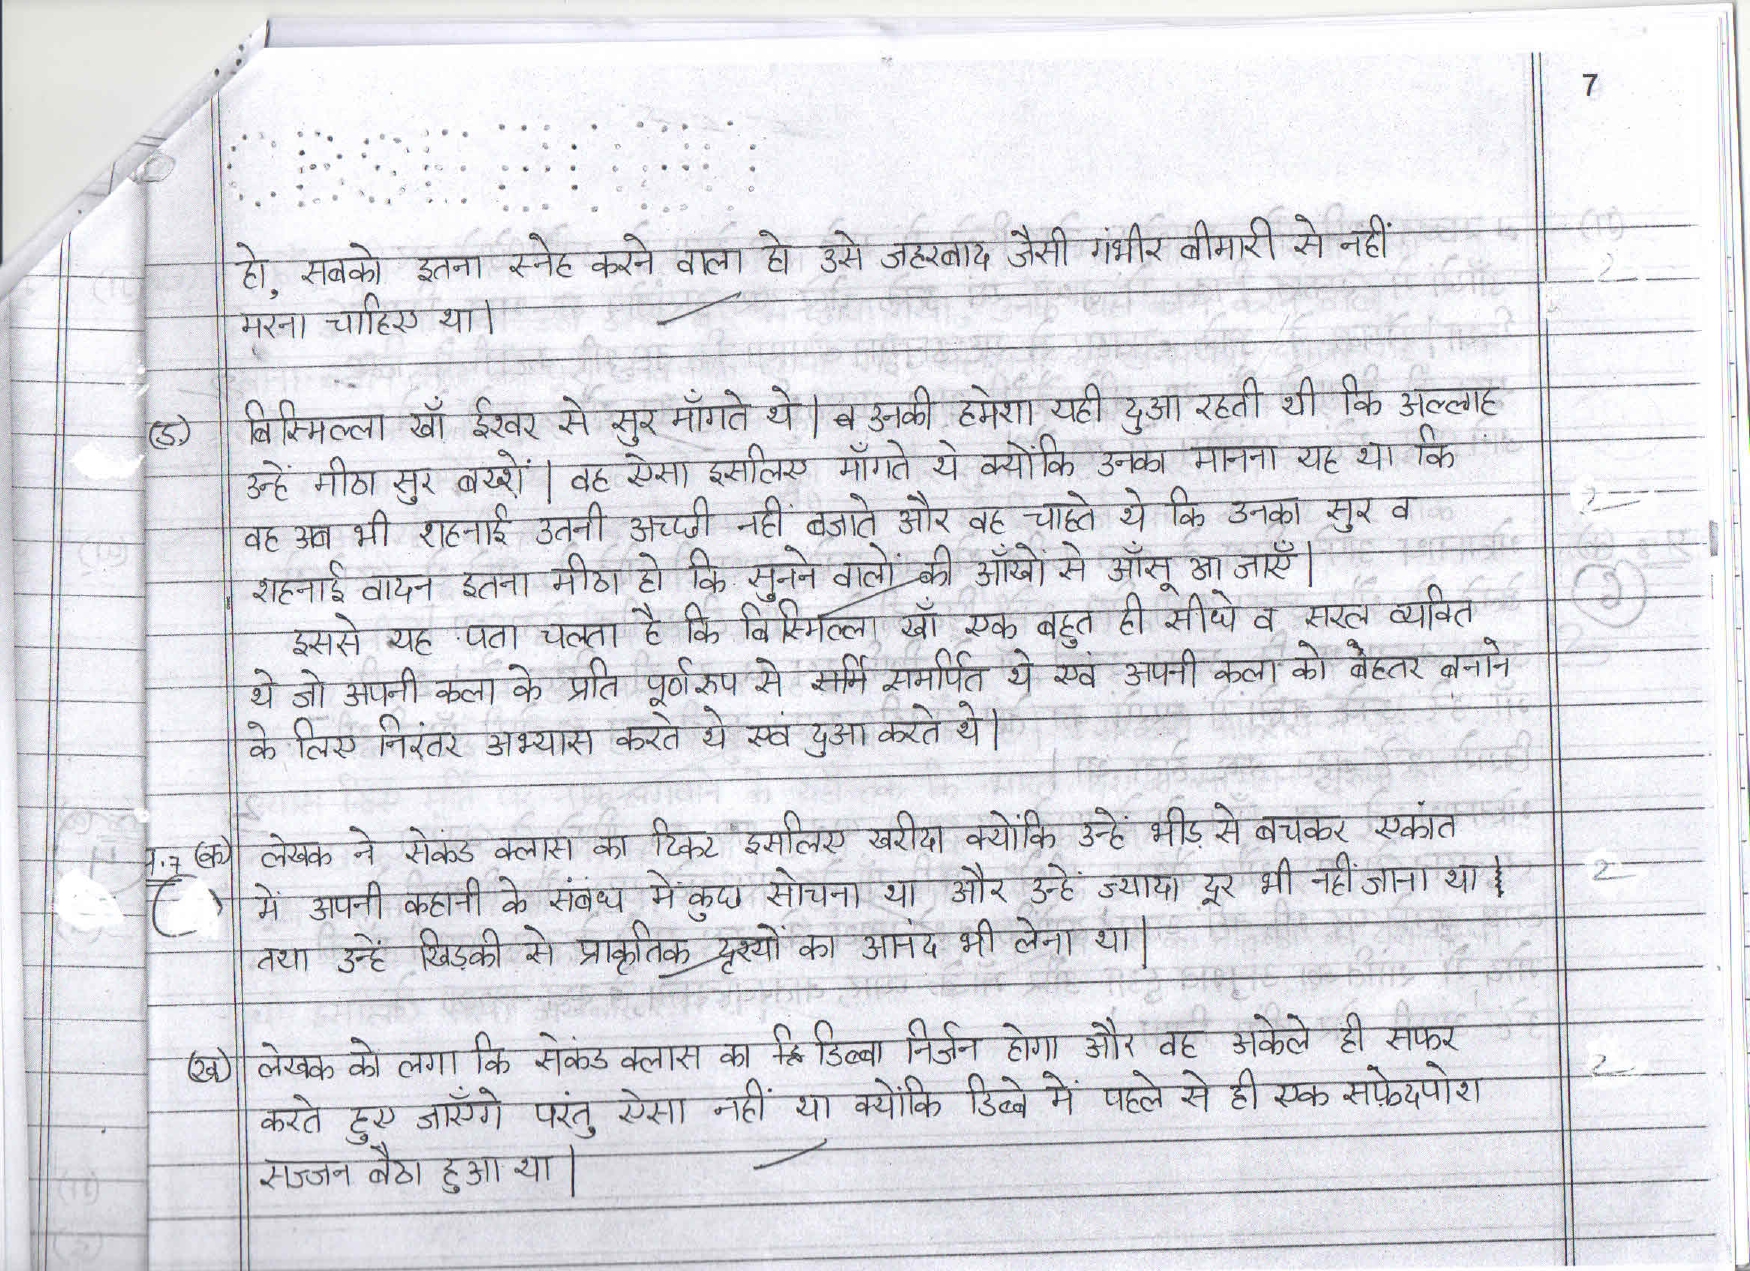 7
हो, सबको इतना स्नेह करने वाला हो उसे जहरबाद जैसी गंभीर बीमारी से नहीं
2
मरना चाहिए था।
(ङ) बिस्मिल्ला खाँ ईश्वर से सुर माँगते थे। व उनकी हमेशा यही दुआ रहती थी कि अल्लाह
उन्हें मीठा सुर बख्शें। वह ऐसा इसलिए माँगते थे क्योंकि उनका मानना यह था कि
2
वह अब भी शहनाई उतनी अच्छी नहीं बजाते और वह चाहते थे कि उनका सुर व
शहनाई वादन इतना मीठा हो कि सुनने वालों की आँखों से आँसू आ जाएँ।
इससे यह पता चलता है कि बिस्मिल्ला खाँ एक बहुत ही सीधे व सरल व्यक्ति
थे जो अपनी कला के प्रति पूर्ण रुप से समर्पित थे एवं अपनी कला को बेहतर बनाने
के लिए निरंतर अभ्यास करते थे एवं दुआ करते थे।
प्र.7 (क) लेखक ने सेकंड क्लास का टिकट इसलिए खरीदा क्योंकि उन्हें भीड़ से बचकर एकांत
में अपनी कहानी के संबंध में कुछ सोचना था और उन्हें ज्यादा दूर भी नहीं जाना था
2
तथा उन्हें खिड़की से प्राकृतिक दृश्यों का आनंद भी लेना था।
(ख) लेखक को लगा कि सेकंड क्लास का डिब्बा निर्जन होगा और वह अकेले ही सफर
2
करते हुए जाएँगे परंतु ऐसा नहीं था क्योंकि डिब्बे में पहले से ही एक सफ़ेदपोश
सज्जन बैठा हुआ था।